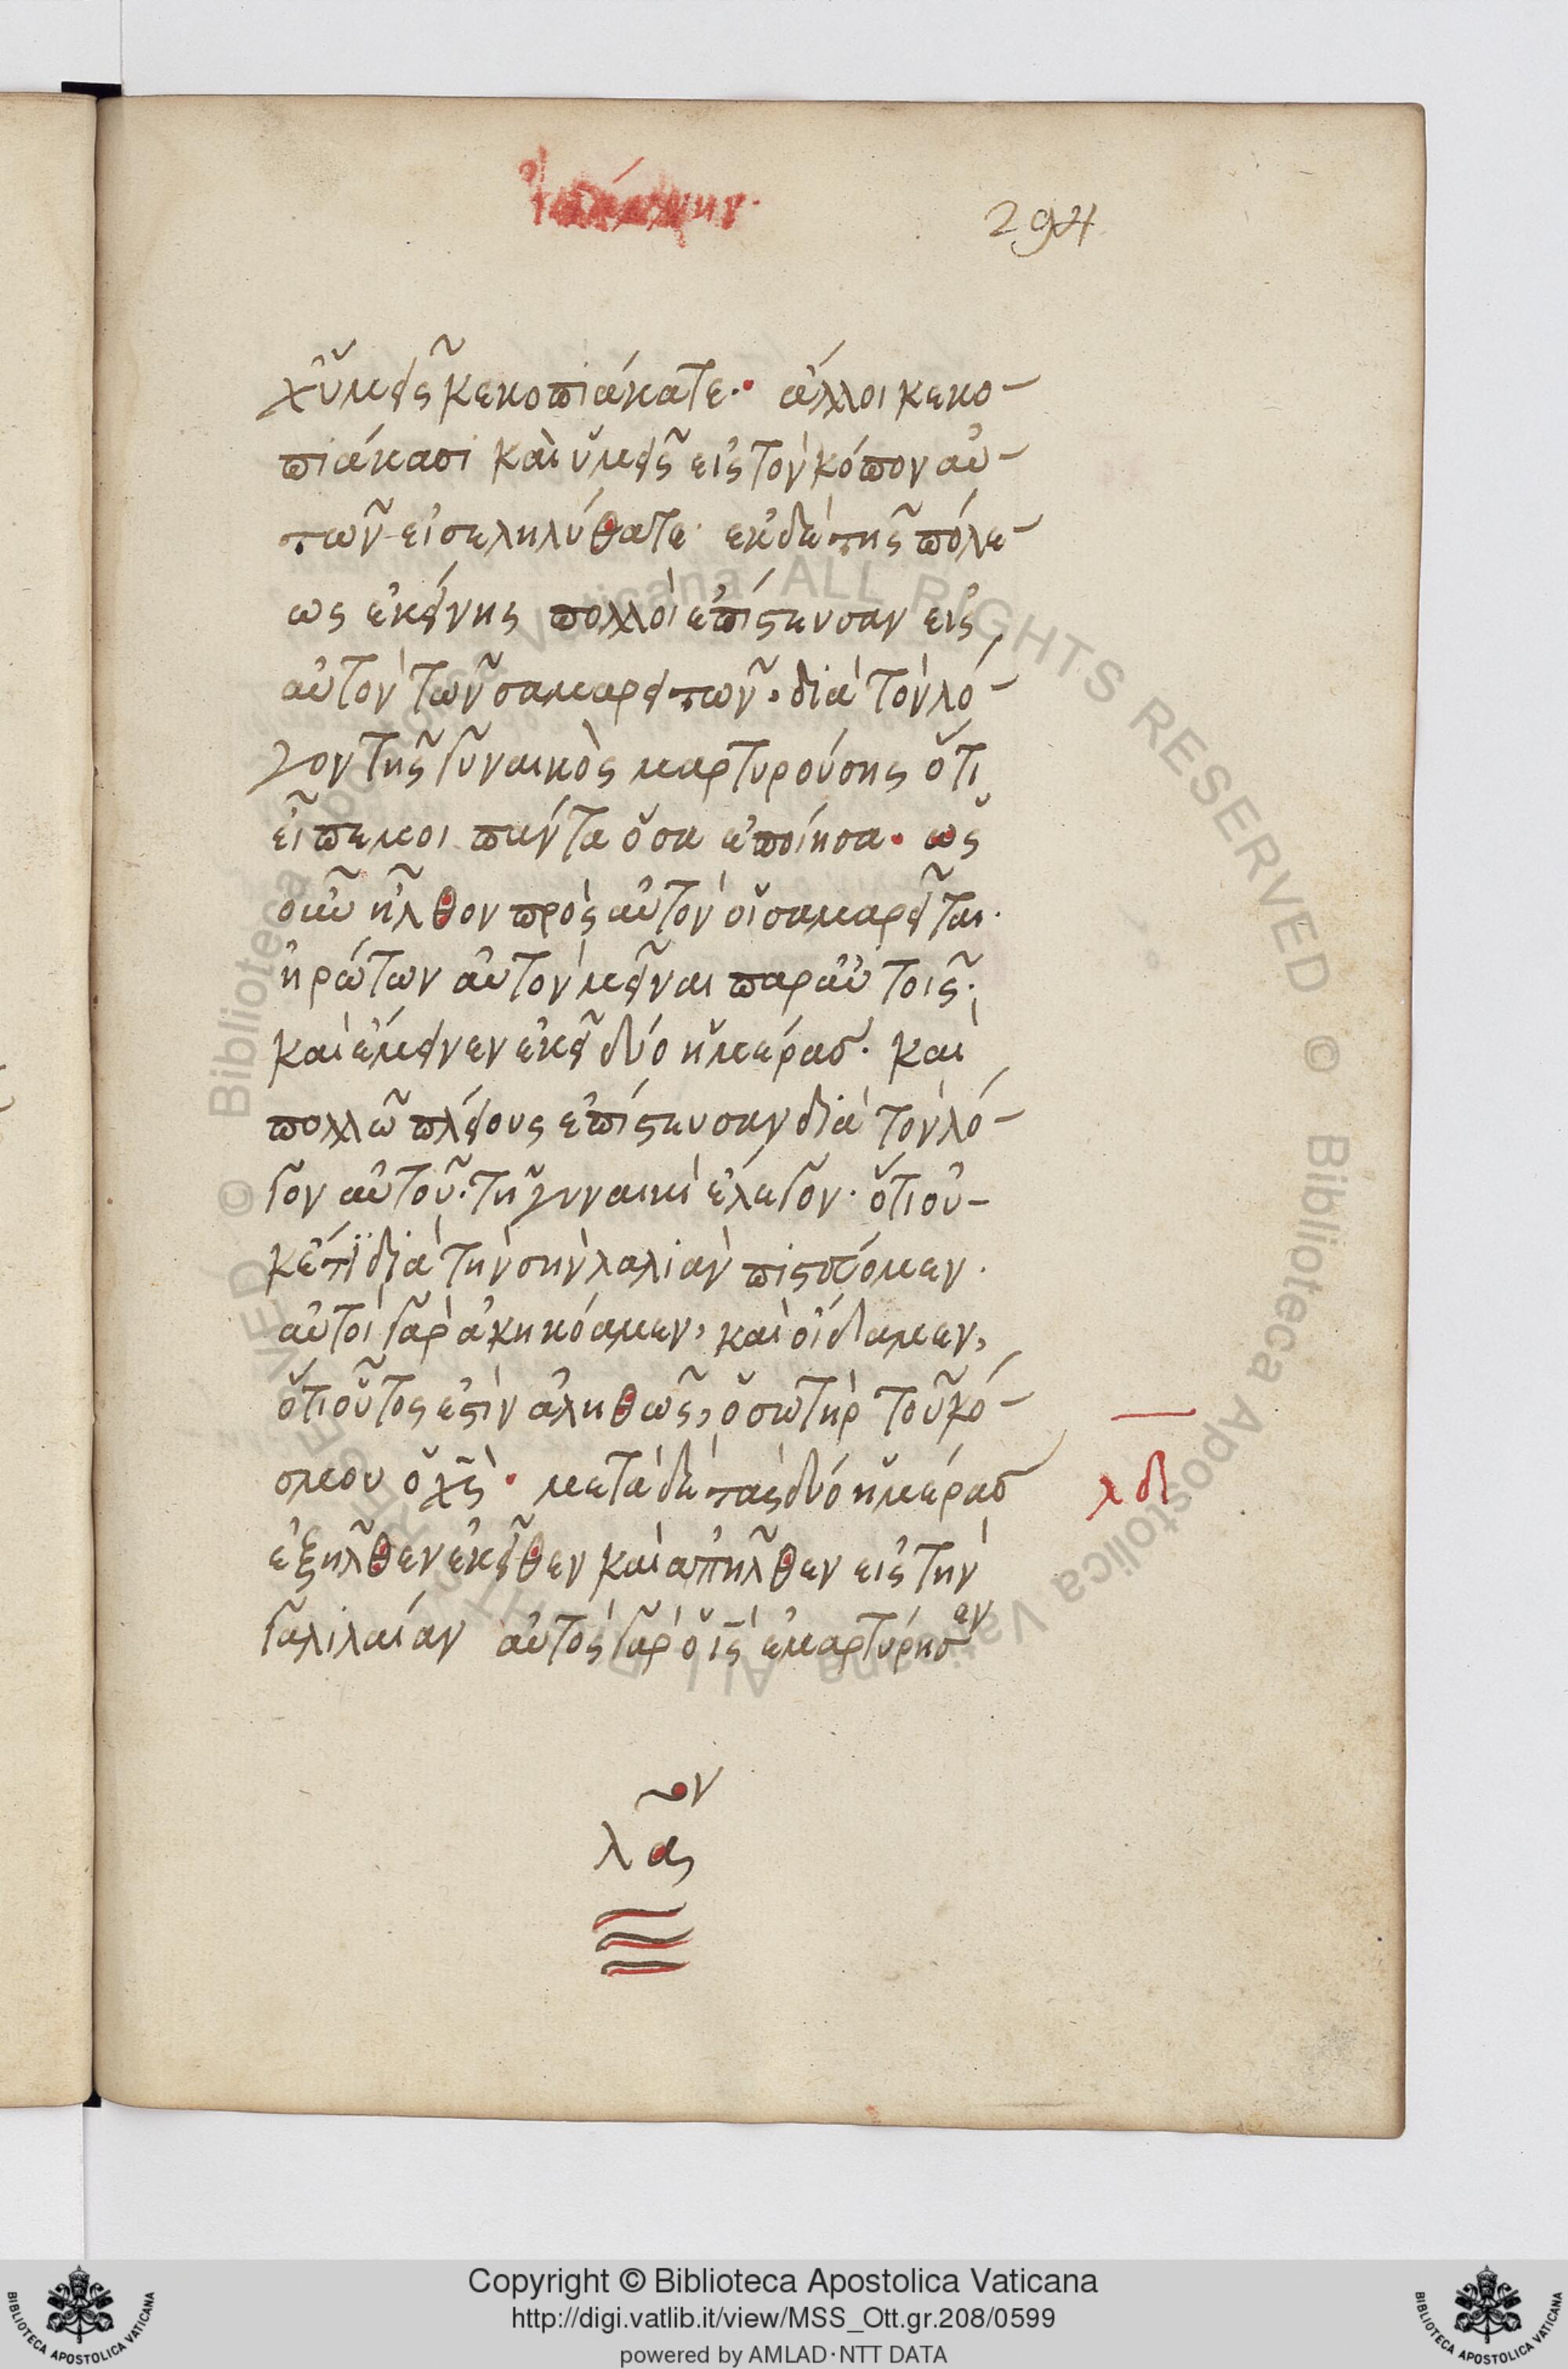 294
χ ὑμεῖς κεκοπιάκατε· ἄλλοι κεκο-
πιάκασι καὶ ὑμεῖς εἰς τὸν κόπον αὐ-
τῶν εἰσεληλύθατε· ἐκ δὲ τῆς πόλε-
ως ἐκείνης πολλοὶ ἐπίστευσαν εἰς
αὐτὸν τῶν σαμαρειτῶν· διὰ τὸν λό-
γον τῆς γυναικὸς μαρτυρούσης ὅτι
εἶπε μοι πάντα ὅσα ἐποίησα· ὡς
οὖν ἦλθον πρὸς αὐτὸν οἱ σαμαρεῖται·
ἠρώτων αὐτὸν μεῖναι παρ αὐτοῖς·
καὶ ἔμεινεν ἐκεῖ δύο ἡμέρας· καὶ
πολλῶ πλείους ἐπίστευσαν διὰ τὸν λό-
γον αὐτοῦ· τῆ γυναικὶ ἔλεγον· ὅτι οὐ-
κέτϊ διὰ τὴν σὴν λαλιὰν πιστεύομεν·
αὐτοὶ γὰρ ἀκηκόαμεν, καὶ οἴδαμεν,
ὅτι οὗτός ἐστὶν ἀληθῶς, ὁ σωτὴρ τοῦ κό-
σμου ὁ χς· μετὰ δὲ τὰς δύο ἡμέρας
λδ
ἐξῆλθεν ἐκεῖθεν καὶ ἀπῆλθεν εἰς τὴν
γαλιλαίαν αὐτὸς γὰρ ὁ ις ἐμαρτύρησεν
© Biblioteca Apostolica Vaticana ALL RIGHTS RESERVED
Copyright © Biblioteca Apostolica Vaticana
http://digi.vatlib.it/view/MSS_Ott.gr.208/0599
powered by AMLAD·NTT DATA
BIBLIOTECA APOSTOLICA VATICANA
BIBLIOTECA APOSTOLICA VATICANA